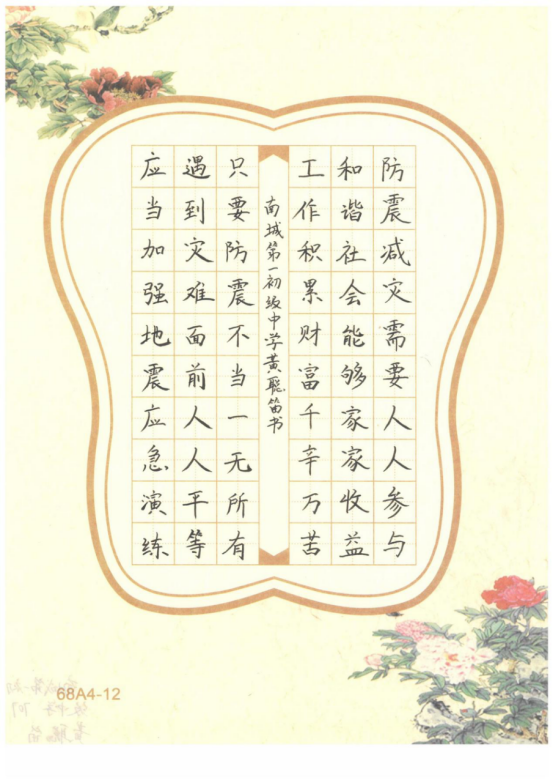 防震减灾需要人人参与
和谐社会能够家家收益
工作积累财富千辛万苦
南城第一初级中学黄聪笛书
只要防震不当一无所有
遇到灾难面前人人平等
应当加强地震应急演练
68A4-12